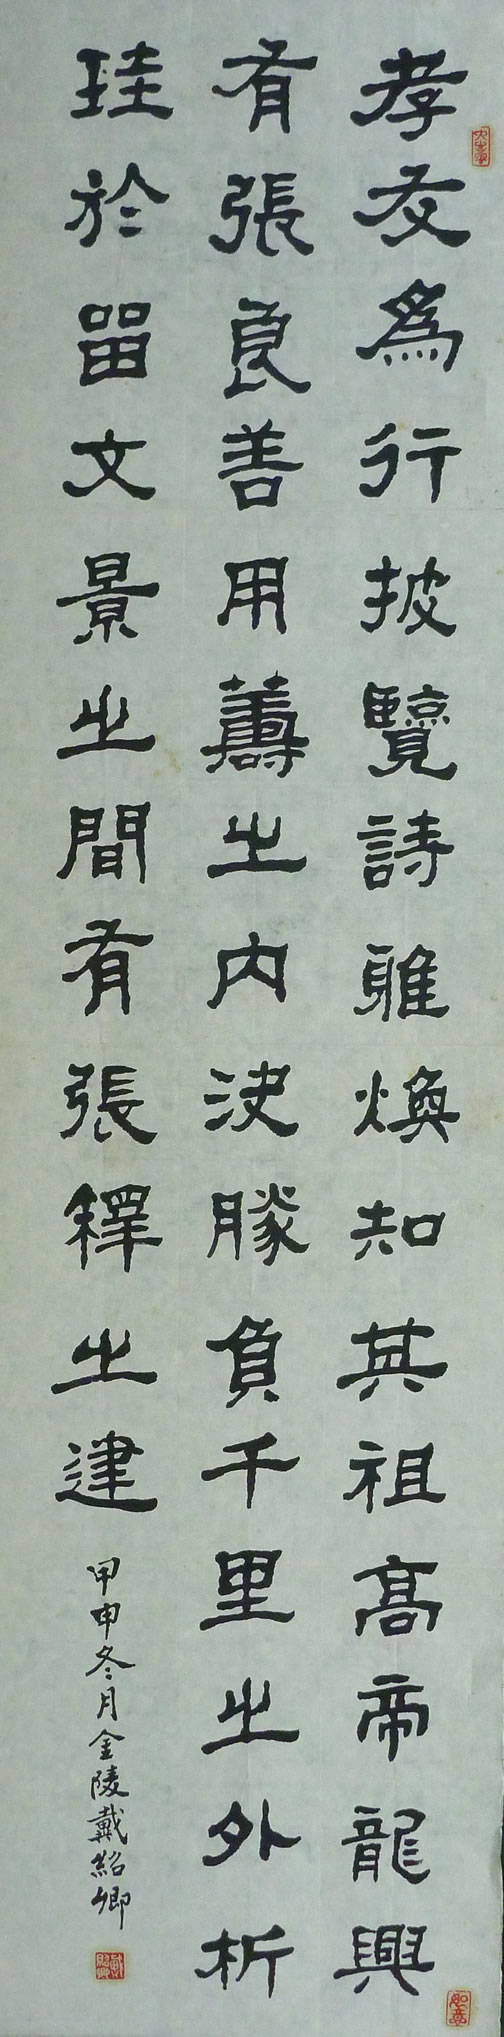 孝友為行披覽詩雅煥知其祖高帝龍興
有張良善用籌之內決勝負千里之外析
珪於留文景之間有張釋之建
甲申冬月金陵戴紹卿